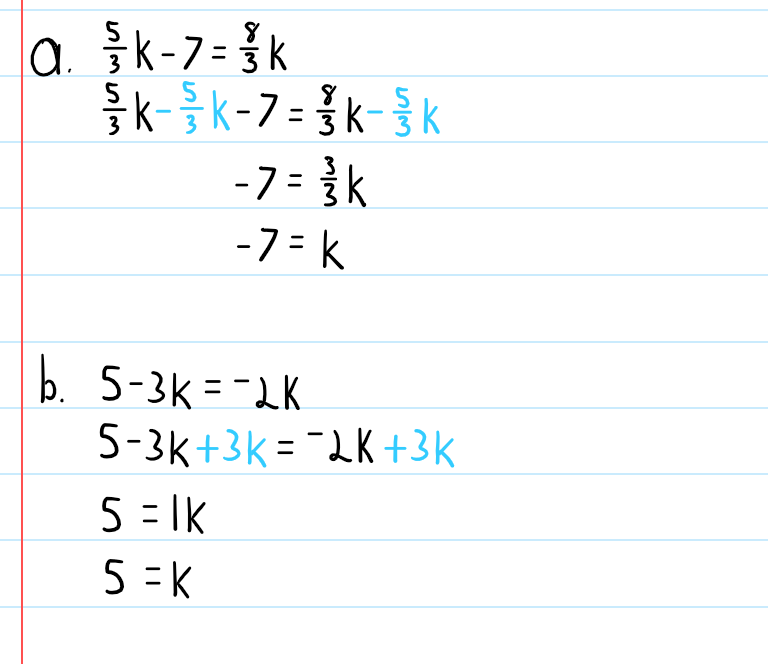 a. 5/3 k - 7 = 8/3 k
5/3 k - 5/3 k - 7 = 8/3 k - 5/3 k
-7 = 3/3 k
-7 = k
b. 5 - 3k = -2k
5 - 3k + 3k = -2k + 3k
5 = 1k
5 = k